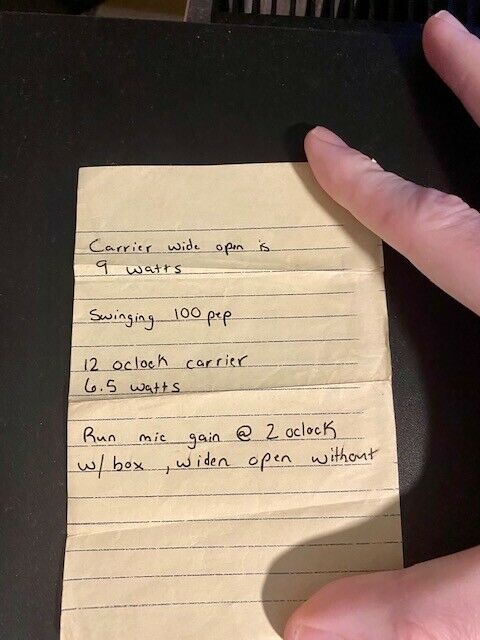 Carrier wide open is
9 watts
Swinging 100 pep
12 oclock carrier
6.5 watts
Run mic gain @ 2 oclock
w/ box , widen open without